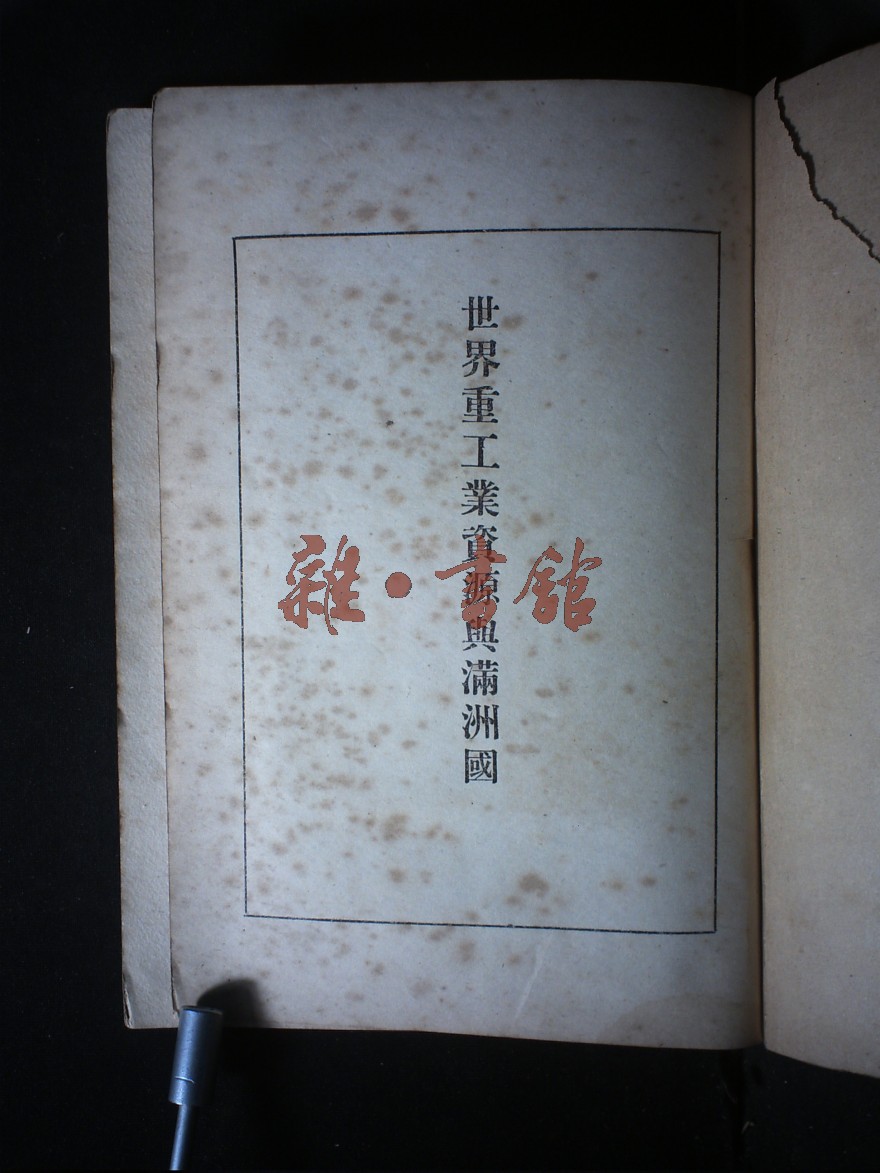 世界重工業資源與滿洲國
雜·書館